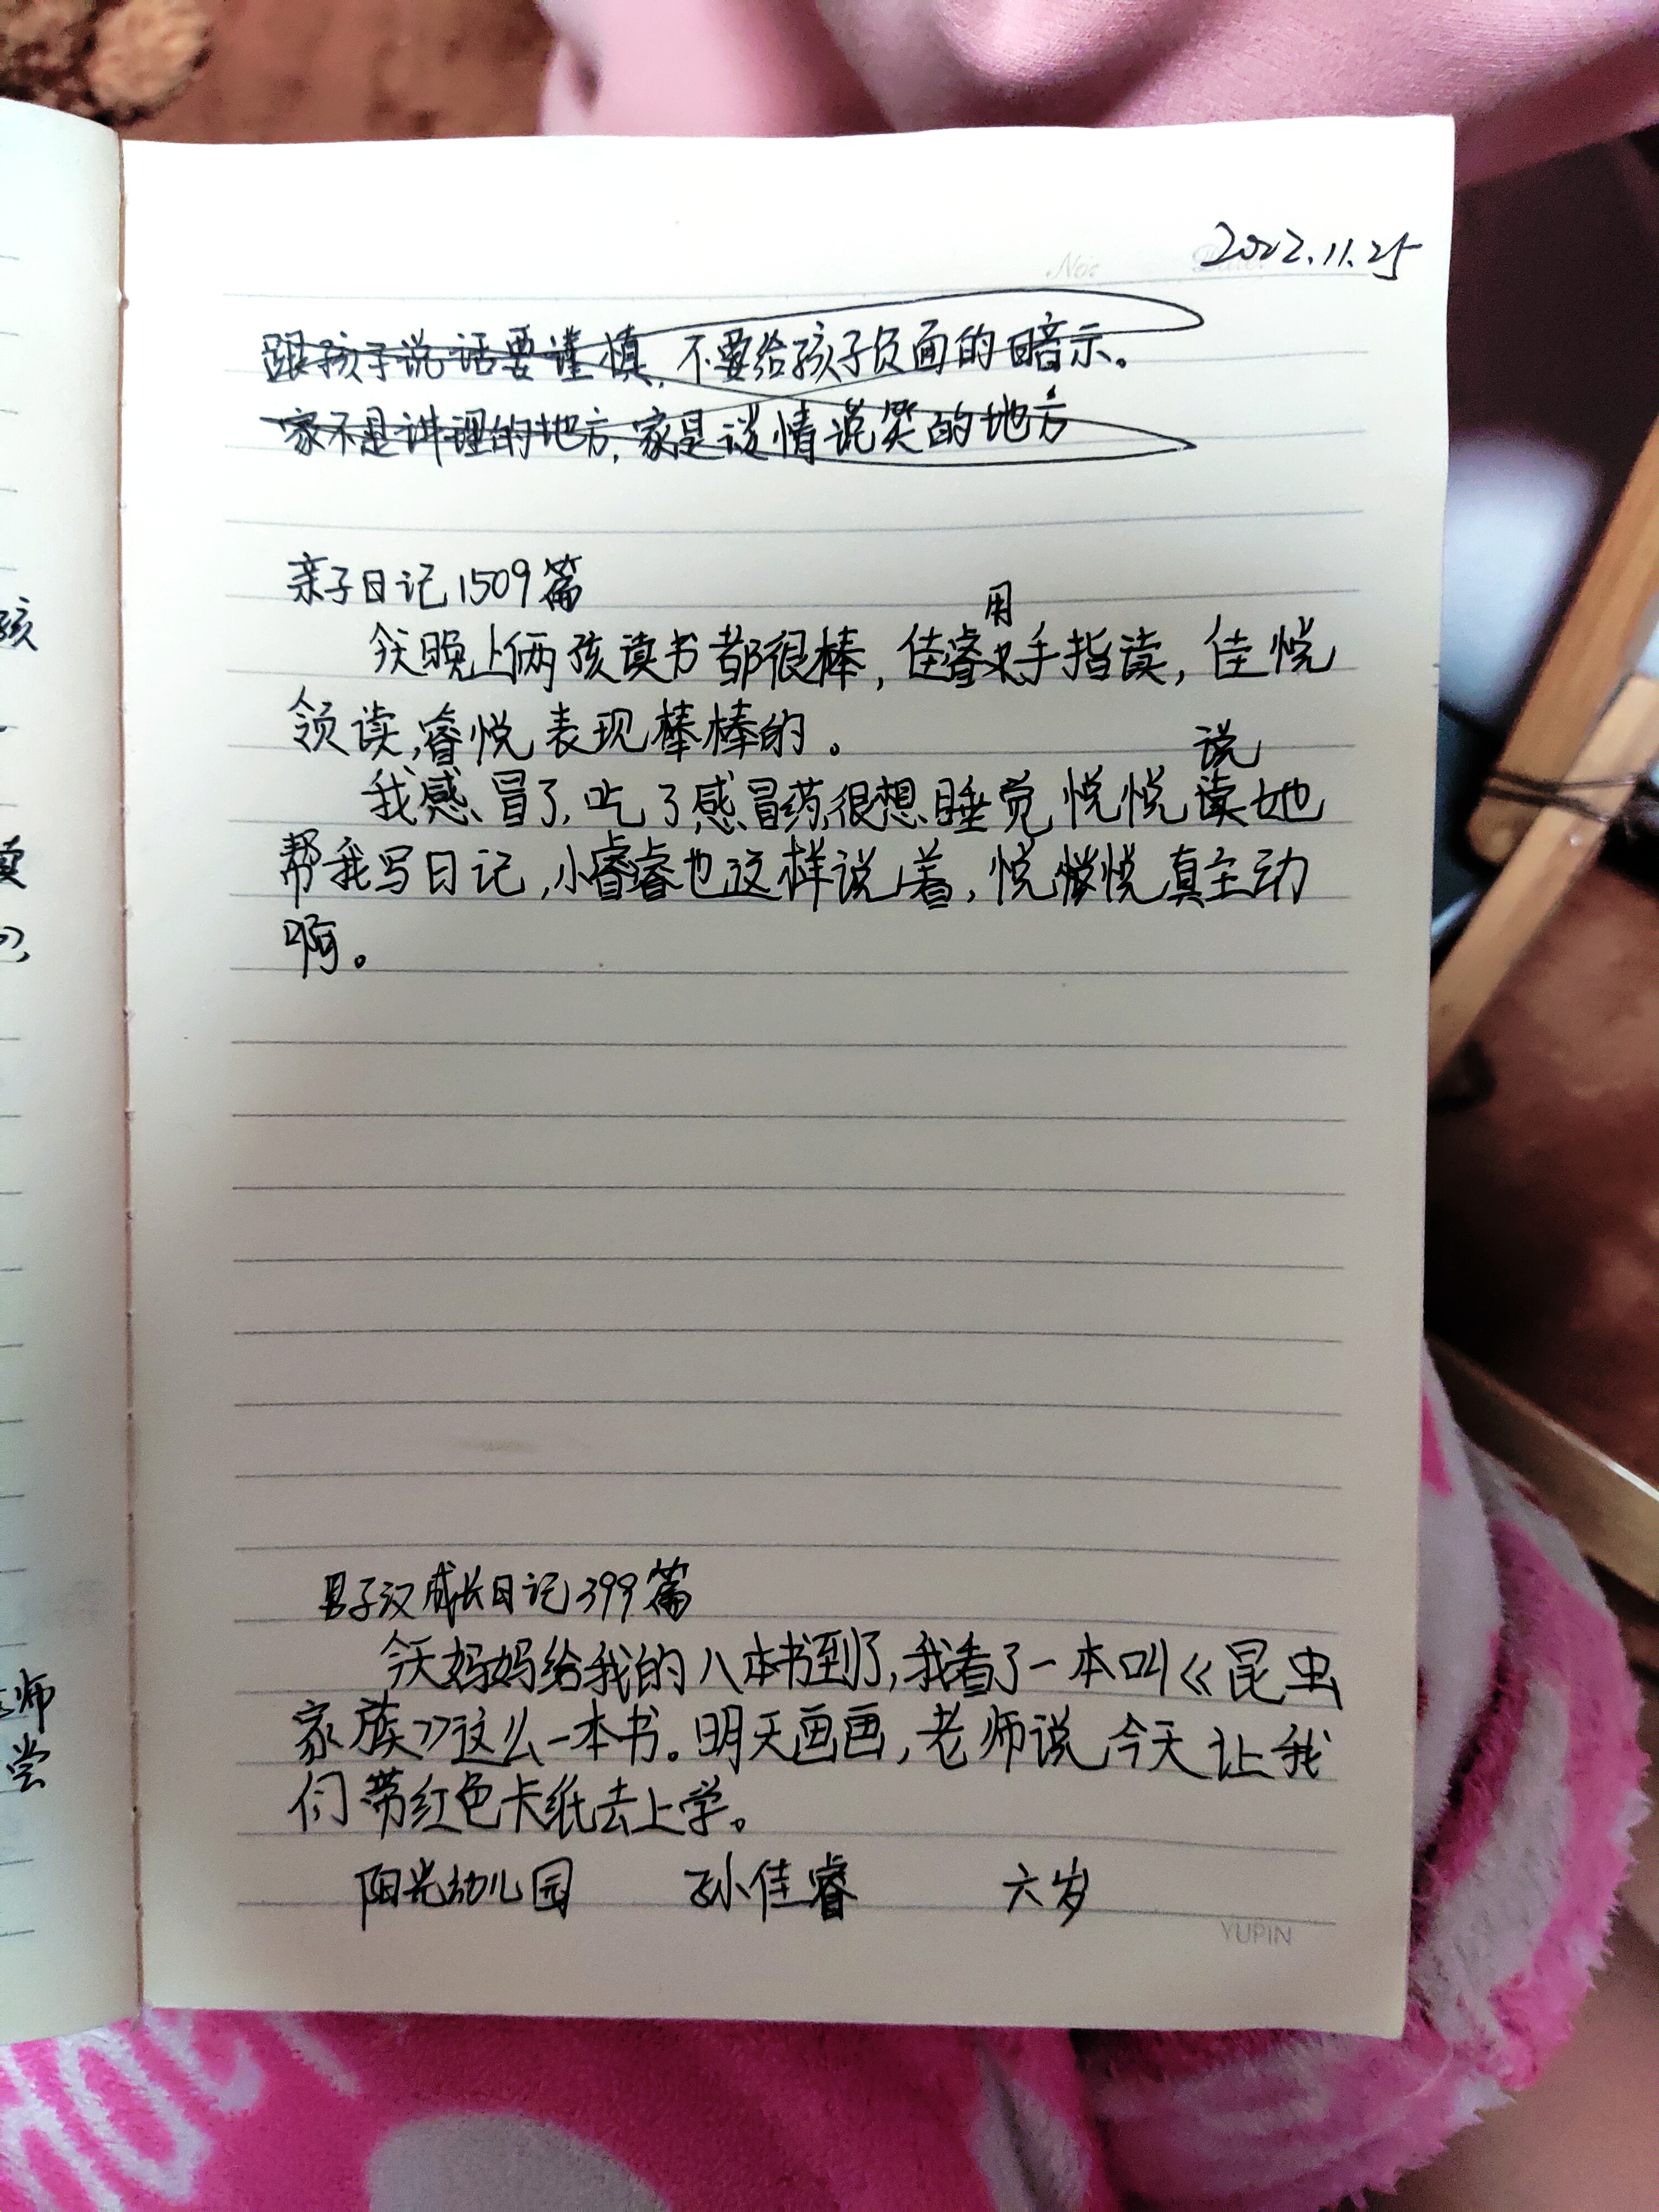 2022.11.25
No:
跟孩子说话要谨慎,不要给孩子负面的暗示。
家不是讲理的地方,家是谈情说笑的地方
亲子日记1509篇
用
今天晚上俩孩读书都很棒,佳睿手指读,佳悦
领读,睿悦表现棒棒的。
说
我感冒了,吃了感冒药很想睡觉悦悦读她
帮我写日记,小睿睿也这样说着,悦悦真主动
啊。
男子汉成长日记399篇
今天妈妈给我的八本书到了,我看了一本叫《昆虫
家族》这么一本书。明天画画,老师说今天让我
们带红色卡纸去上学。
阳光幼儿园 孙佳睿 六岁
YUPIN
孩
师
尝